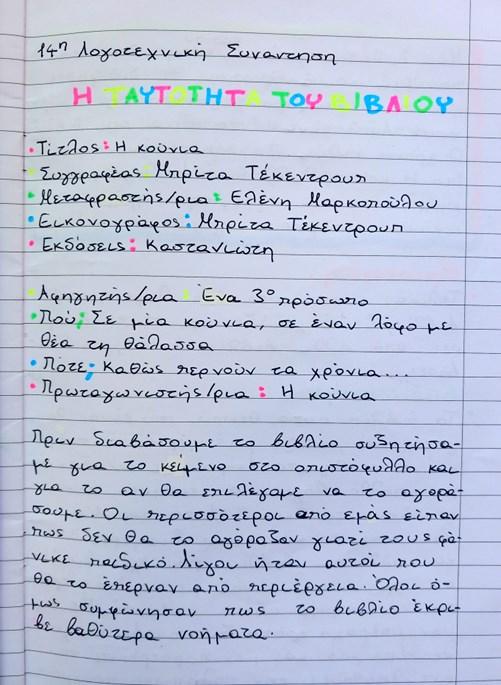 14η Λογοτεχνική Συνάντηση
Η ΤΑΥΤΟΤΗΤΑ ΤΟΥ ΒΙΒΛΙΟΥ
• Τίτλος: Η κούνια
• Συγγραφέας: Μπρίτα Τέκεντρουπ
• Μεταφραστής/ρια: Ελένη Μαρκοπούλου
• Εικονογράφος: Μπρίτα Τέκεντρουπ
• Εκδόσεις: Καστανιώτη
• Αφηγητής/ρια: Ένα 3ο πρόσωπο
• Πού; Σε μία κούνια, σε έναν λόφο με
θέα τη θάλασσα
• Πότε; Καθώς περνούν τα χρόνια...
• Πρωταγωνιστής/ρια: Η κούνια
Πριν διαβάσουμε το βιβλίο συζητήσα-
με για το κείμενο στο οπιστόφυλλο και
για το αν θα επιλέγαμε να το αγορά-
σουμε. Οι περισσότεροι από εμάς είπαν
πως δεν θα το αγόραζαν γιατί τους φά-
νικε παιδικό. Λίγοι ήταν αυτοί που
θα το έπερναν από περιέργεια. Όλοι ό-
μως συμφώνησαν πως το βιβλίο έκρυ-
βε βαθύτερα νοήματα.